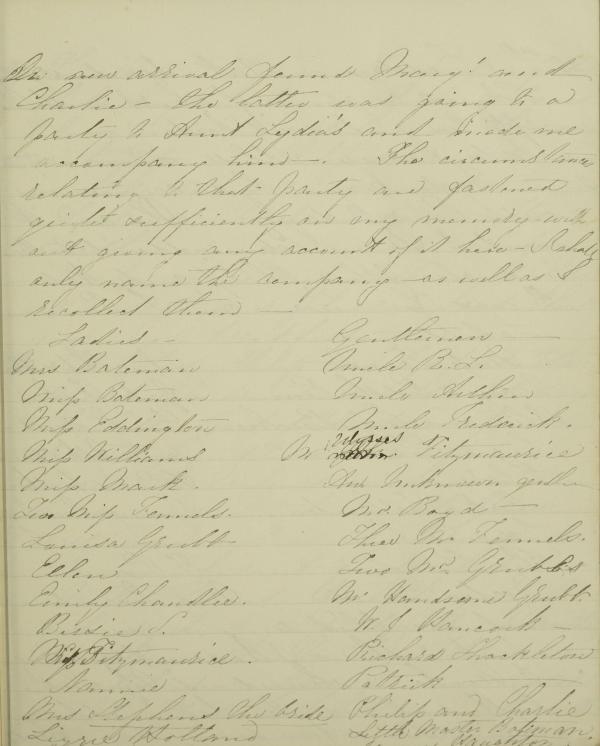 On our arrival found Mary! and
Charlie – The latter was going to a
party to Aunt Lydia's and made me
accompany him —. The circumstances
relating to that party are fastened
quite sufficiently on my memory with
out giving any account of it here – I shall
only name the company – as well as I
recollect them —
Ladies –
Mrs Bateman
Miss Bateman
Miss Eddington
Miss Williams
Miss Mark.
Two Miss Fennels.
Louisa Grubb
Ellen
Emily Chandlee.
Birsie S.
Miss Fitzmaurice.
Nannie
Mrs Stephens the bride
Lizzie Holland
Gentlemen —
Uncle R. L.
Uncle Arthur
Uncle Frederick.
Mr Ulysses Fitzmaurice
An Unknown gentle
Mr. Boyd —
Three Mr Fennels.
Two Mr. Grubbs
Mr Handsome Grubb.
W. J. Hancock –
Richard Shackleton
Patrick —
Philip and Charlie
Little Master Bateman.